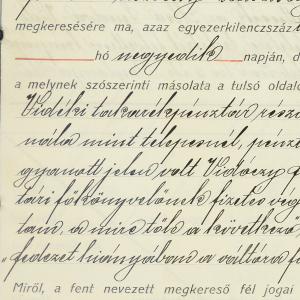 megkeresésére ma, azaz egyezerkilenczszáz
hó negyedik napján, d
a melynek szószerinti másolata a tulsó oldalo
Vidéki takarékpénztár rész
nála mint telepesnél, pénz
gyanott jelen volt Vidóczy f
tári főkönyvelőnek fizetés vég
tam, a mire tőle a következő
„fedezet hiányában a váltóra fi
Miről, a fent nevezett megkereső fél jogai